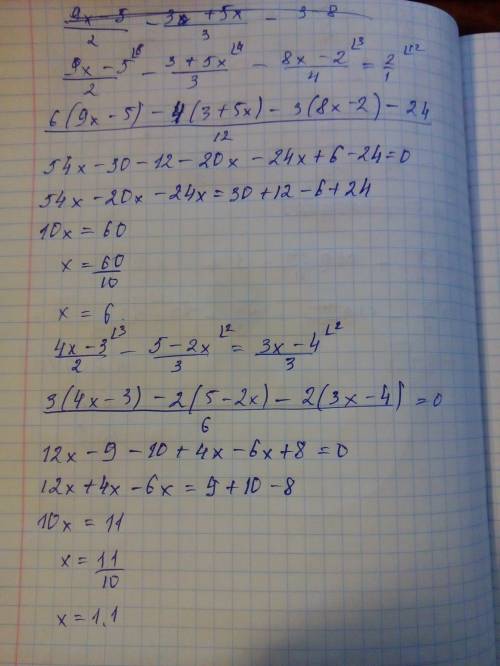 9x-5/2 - 3x+5x/3 - 3-8
9x-5/2 ⌊6 - 3+5x/3 ⌊4 - 8x-2/4 ⌊3 = 2/1 ⌊12
6(9x-5)-4(3+5x)-3(8x-2)-24/12
54x-30-12-20x-24x+6-24=0
54x-20x-24x=30+12-6+24
10x=60
x=60/10
x=6.
4x-3/2 ⌊3 - 5-2x/3 ⌊2 = 3x-4/3 ⌊2
3(4x-3)-2(5-2x)-2(3x-4)/6 =0
12x-9-10+4x-6x+8=0
12x+4x-6x=9+10-8
10x=11
x=11/10
x=1,1